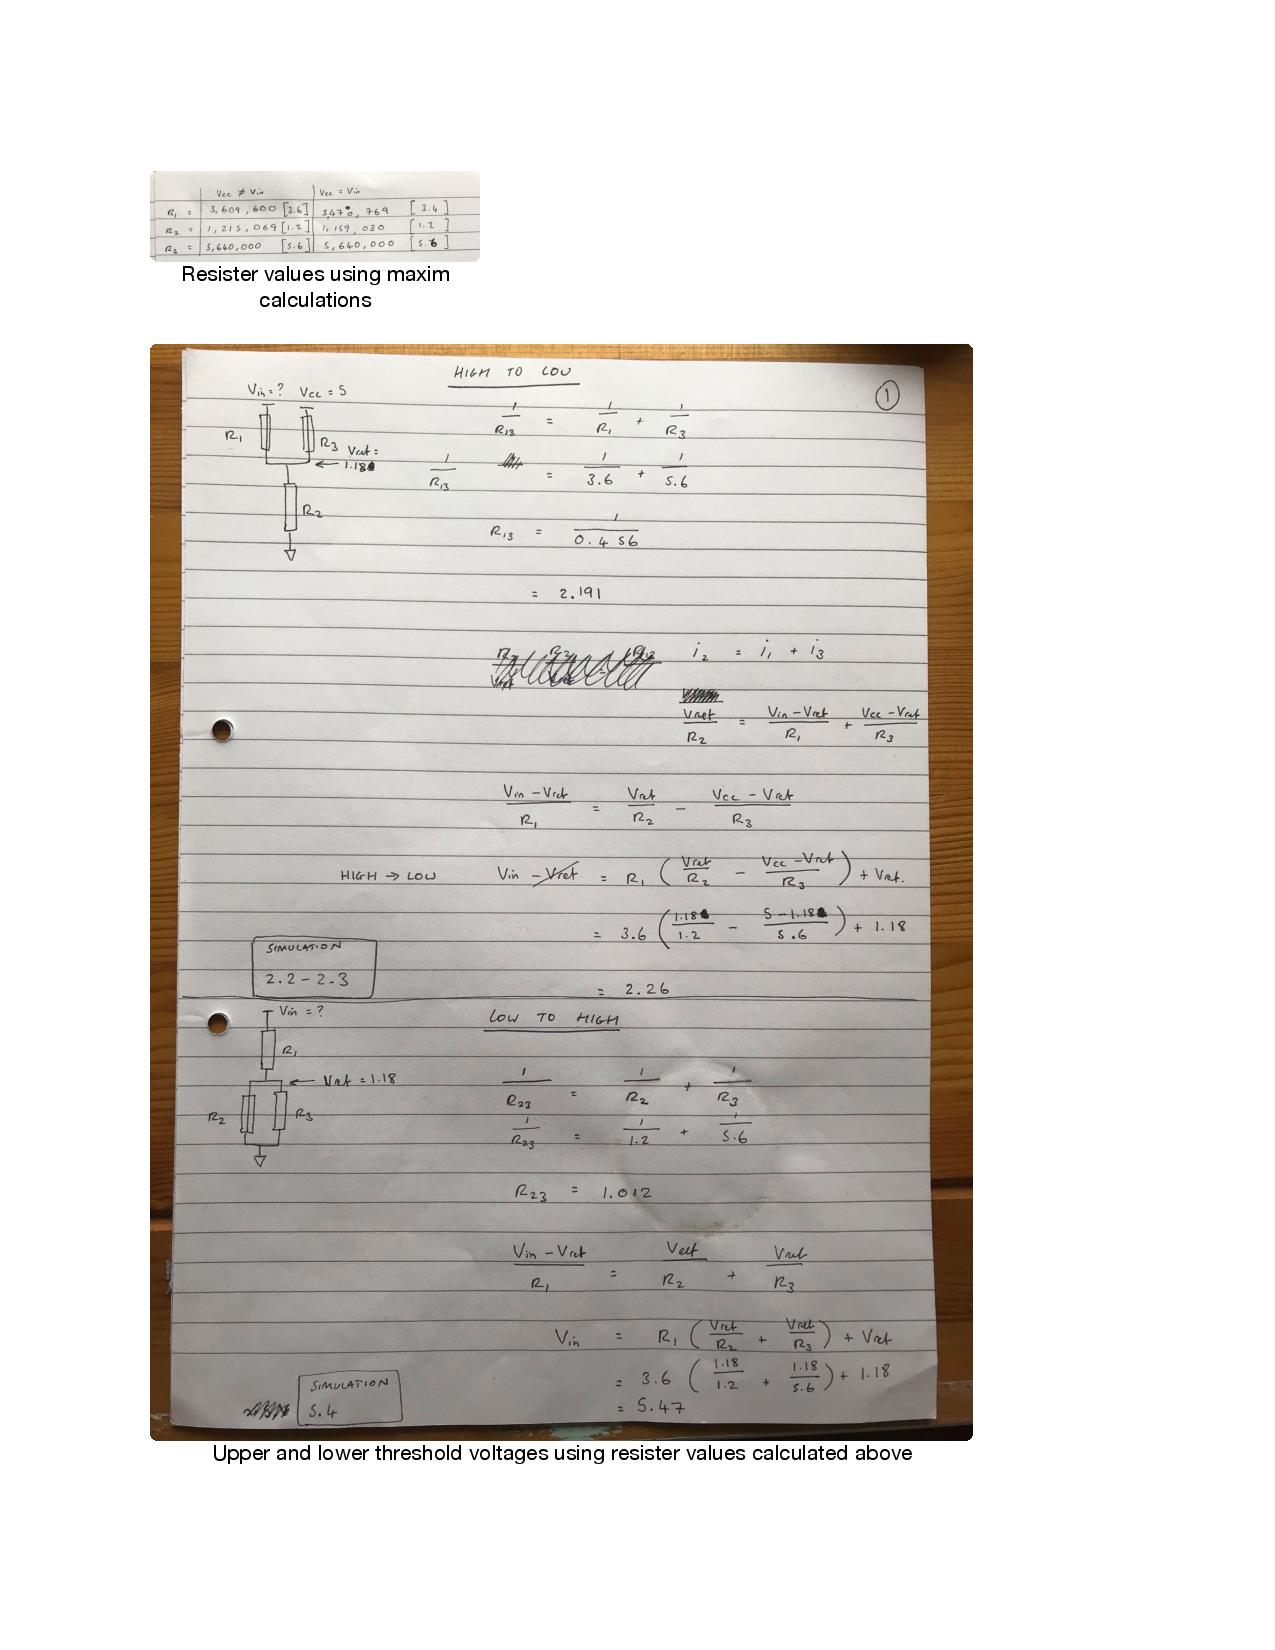 Vcc ≠ Vin Vcc = Vin
R1 = 3,609,600 [3.6] 3,470,769 [3.4]
R2 = 1,215,069 [1.2] 1,159,080 [1.2]
R3 = 5,640,000 [5.6] 5,640,000 [5.6]
Resister values using maxim
calculations
HIGH TO LOW
1
Vin = ? Vcc = 5
R1
R3
Vref =
1.18
R2
1/R13 = 1/R1 + 1/R3
1/R13 = 1/3.6 + 1/5.6
R13 = 1/0.456
= 2.191
i2 = i1 + i3
Vref/R2 = Vin - Vref/R1 + Vcc - Vref/R3
Vin - Vref/R1 = Vref/R2 - Vcc - Vref/R3
HIGH → LOW Vin - Vref = R1 (Vref/R2 - Vcc - Vref/R3) + Vref.
= 3.6 (1.18/1.2 - 5 - 1.18/5.6) + 1.18
SIMULATION
2.2 - 2.3
= 2.26
LOW TO HIGH
Vin = ?
R1
Vref = 1.18
R2
R3
1/R23 = 1/R2 + 1/R3
1/R23 = 1/1.2 + 1/5.6
R23 = 1.012
Vin - Vref/R1 = Vref/R2 + Vref/R3
Vin = R1 (Vref/R2 + Vref/R3) + Vref
= 3.6 (1.18/1.2 + 1.18/5.6) + 1.18
= 5.47
SIMULATION
5.4
Upper and lower threshold voltages using resister values calculated above